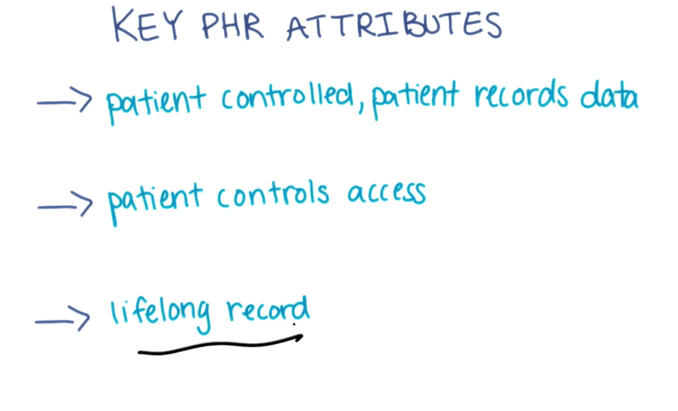 KEY PHR ATTRIBUTES
→ patient controlled, patient records data
→ patient controls access
→ lifelong record